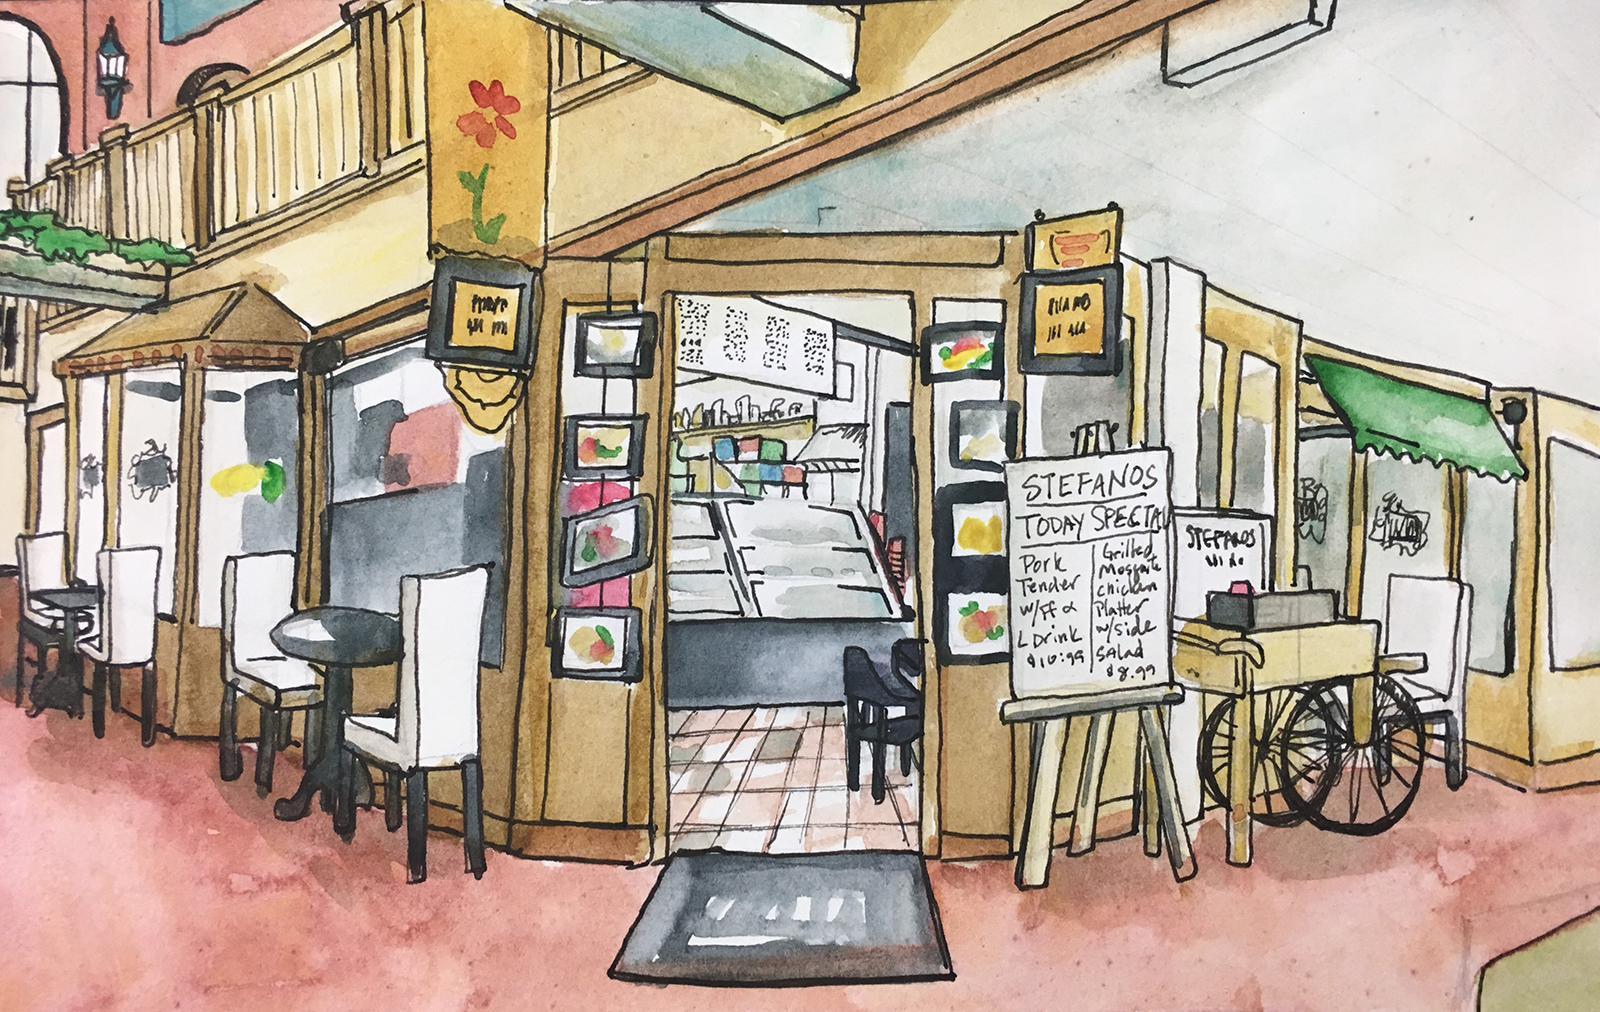 STEFANOS
TODAY SPECIAL
Pork
Tender
w/FF &
L Drink
$10:99
Grilled
Mosquite
chicken
Platter
w/side
SALAD
$8.99
STEFANOS